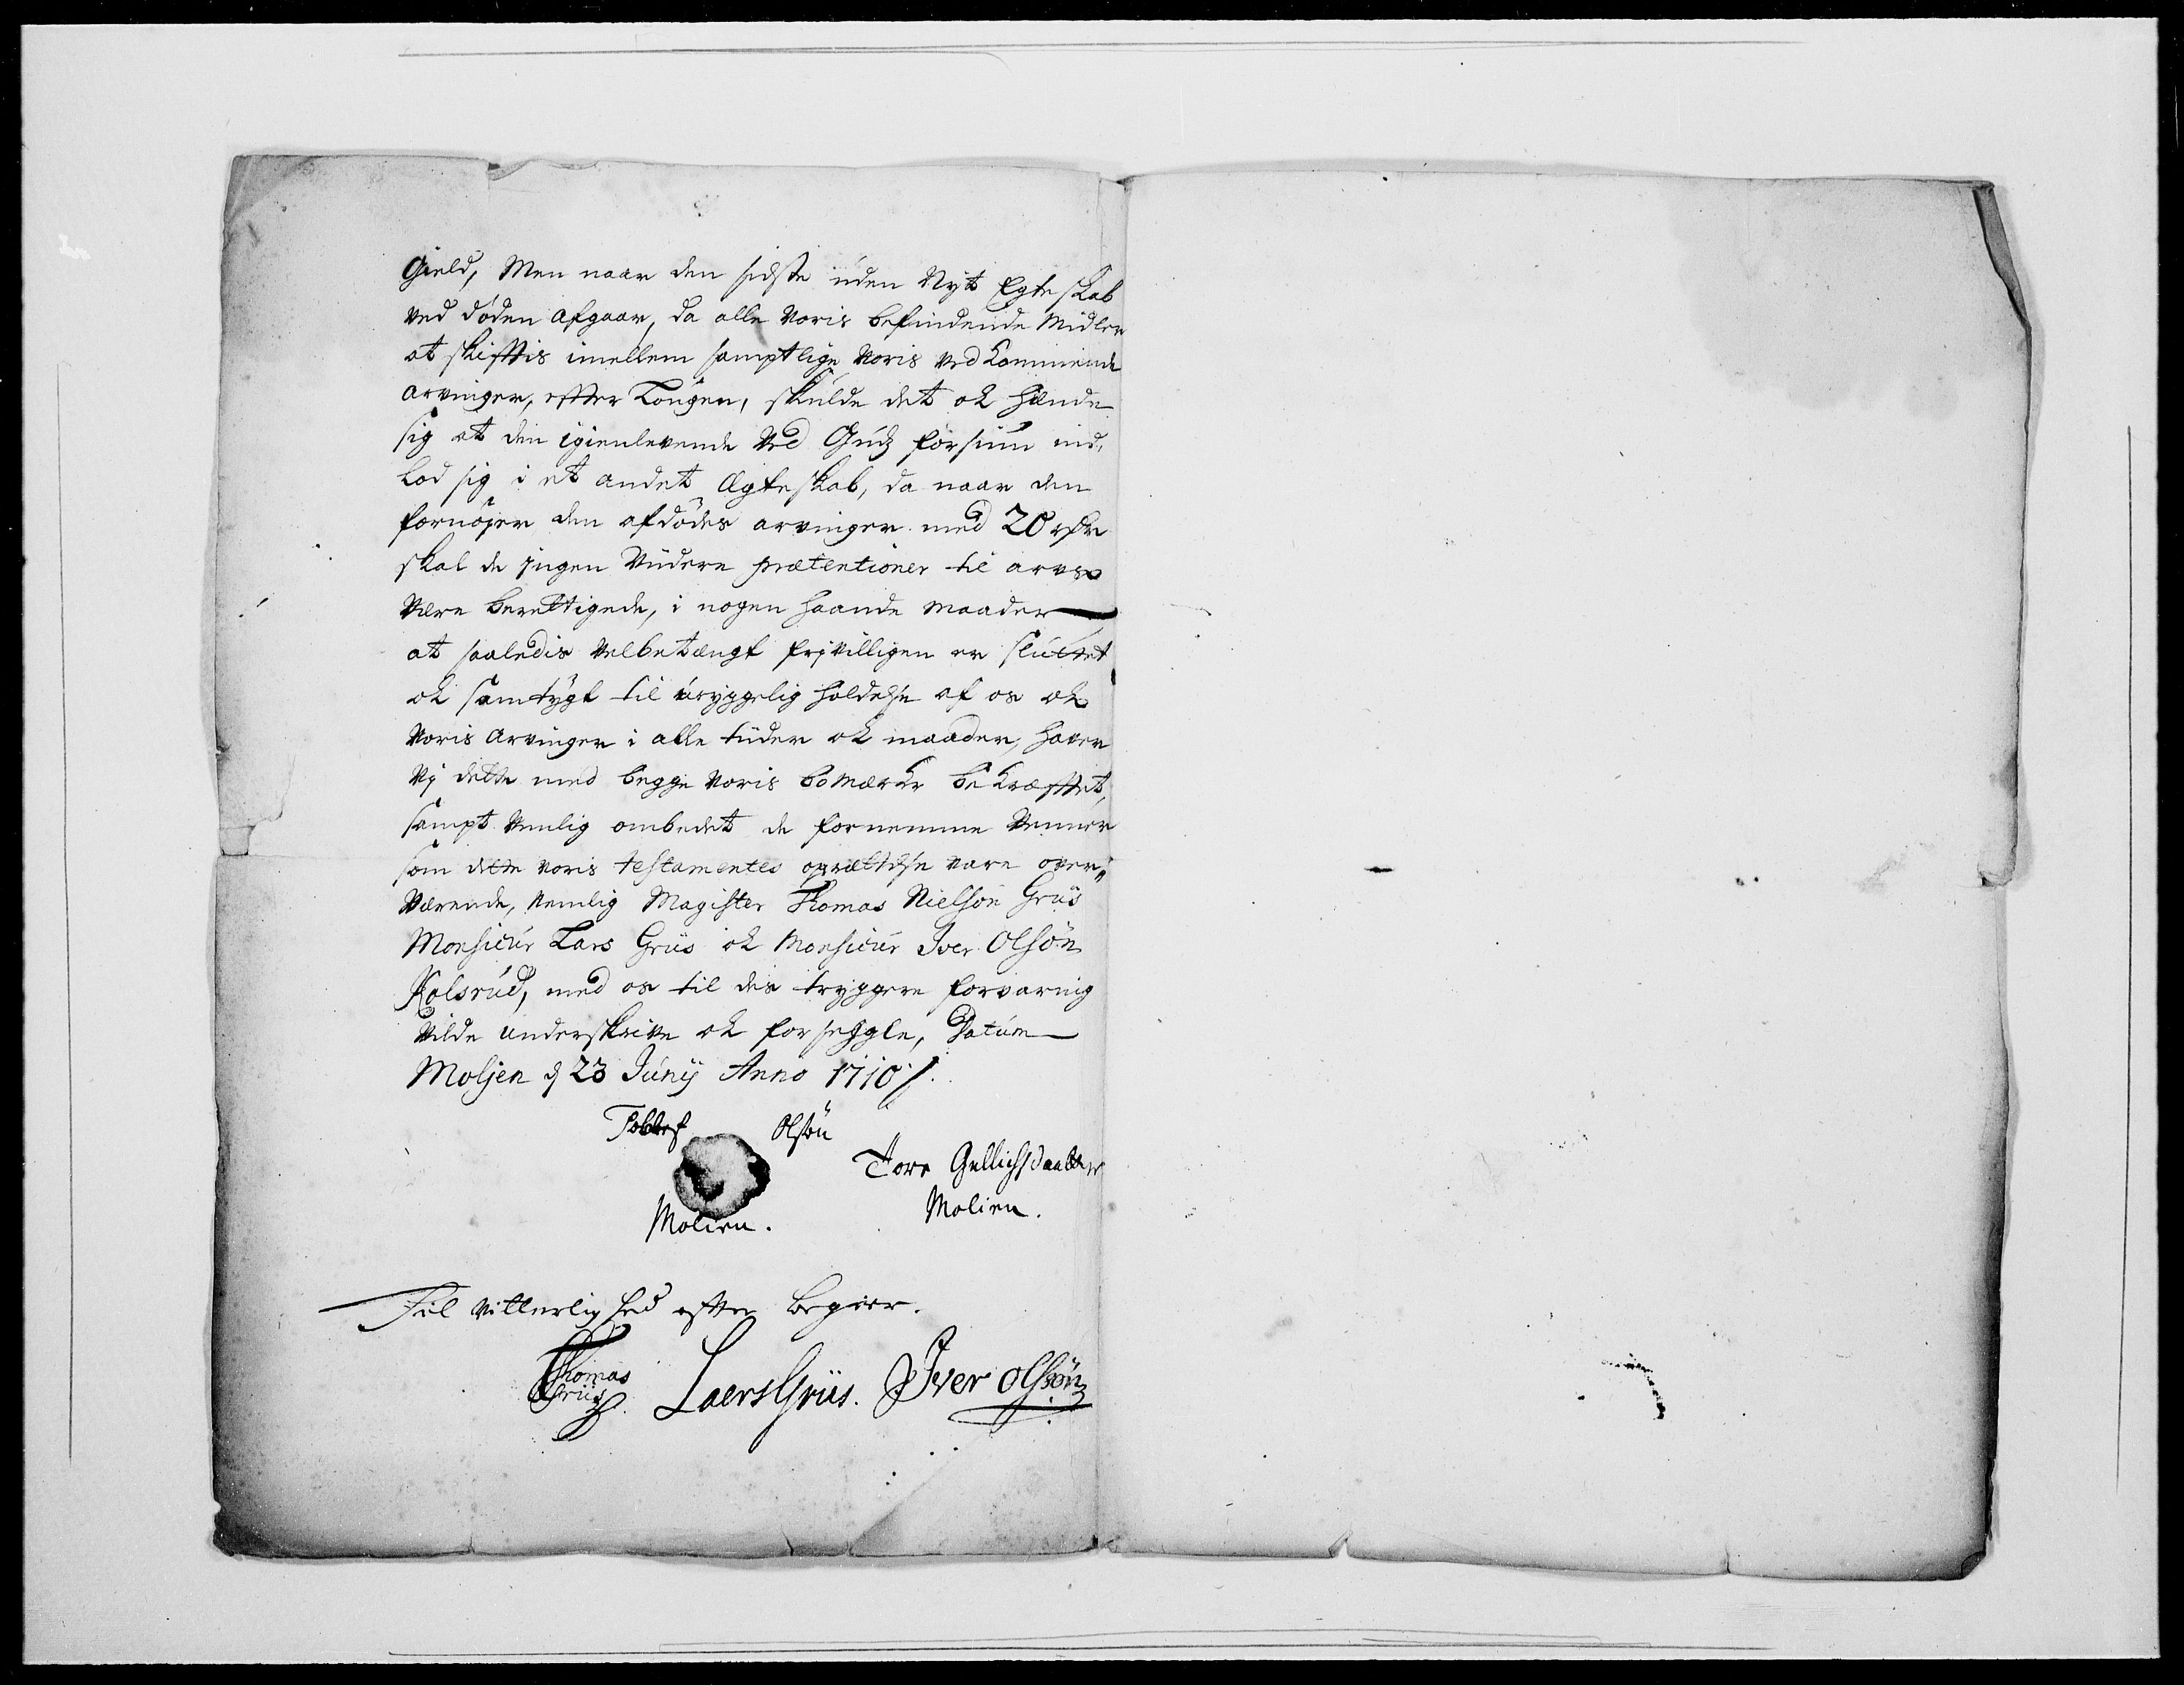 Gield, Men naar den sidste uden Nyt Egteskab
ved døden afgaar, da alle voris befindende Midler
at skifftis imellem samptlige voris vedkommende
arvinger, effter Lougen, skulde det ok hænde
sig at den igienlevende ved Gudz forsiun ind,
lod sig i et andet Ægteskab, da naar den
fornøjer den afdødes arvinger med 20 rdr
skal de ingen viidere prætentioner til arv
være berettigede, i nogen haande maader
at saaledis velbetængt frivilligen er sluttet
ok samtygt til uryggelig holdelse af os ok
voris Arvinger i alle tiider ok maader, haver
vj dette med begge voris bomærke bekræfftet,
sampt venlig ombedet de fornemme Venner
som dette voris testamentes oprættelse vare over„
værende, nemlig Magister Thomas Nielsøn Griis
Monsieur Lars Griis ok Monsieur Iver Olsøn
Kolsrud, med os til des tryggere forvaring
vilde underskrive ok forseggle, Datum
Moljen d 23 Junij Anno 1710 /.
Tollef Olsøn
Tore Gullichsdaatter
Molien. Molien.
Til vitterlighed effter begier.
Thomas Griis Laers Griis. Iver Olssøn